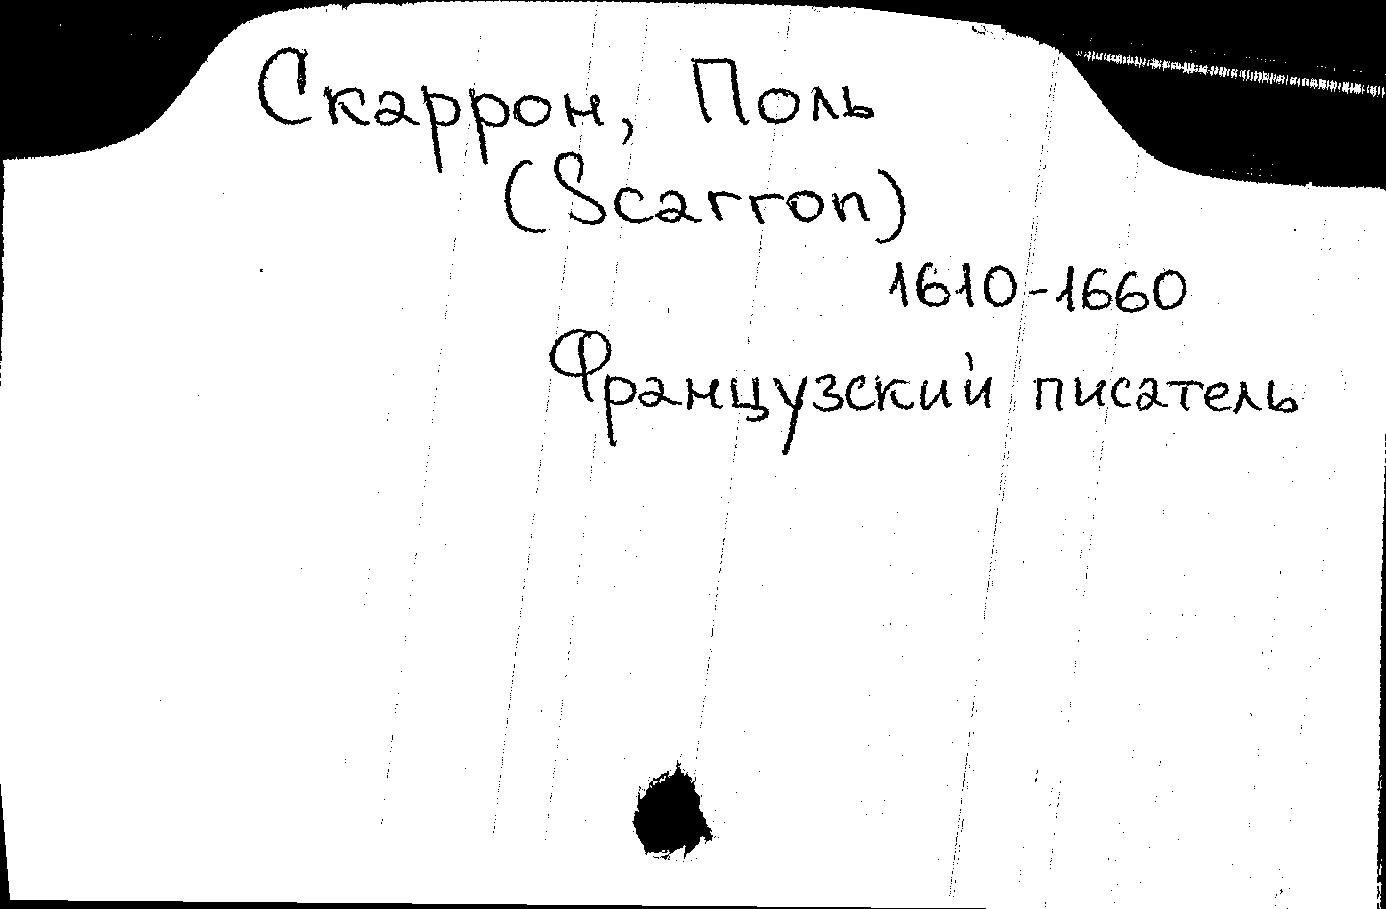 Скаррон, Поль
(Scarron)
1610-1660
Французский писатель